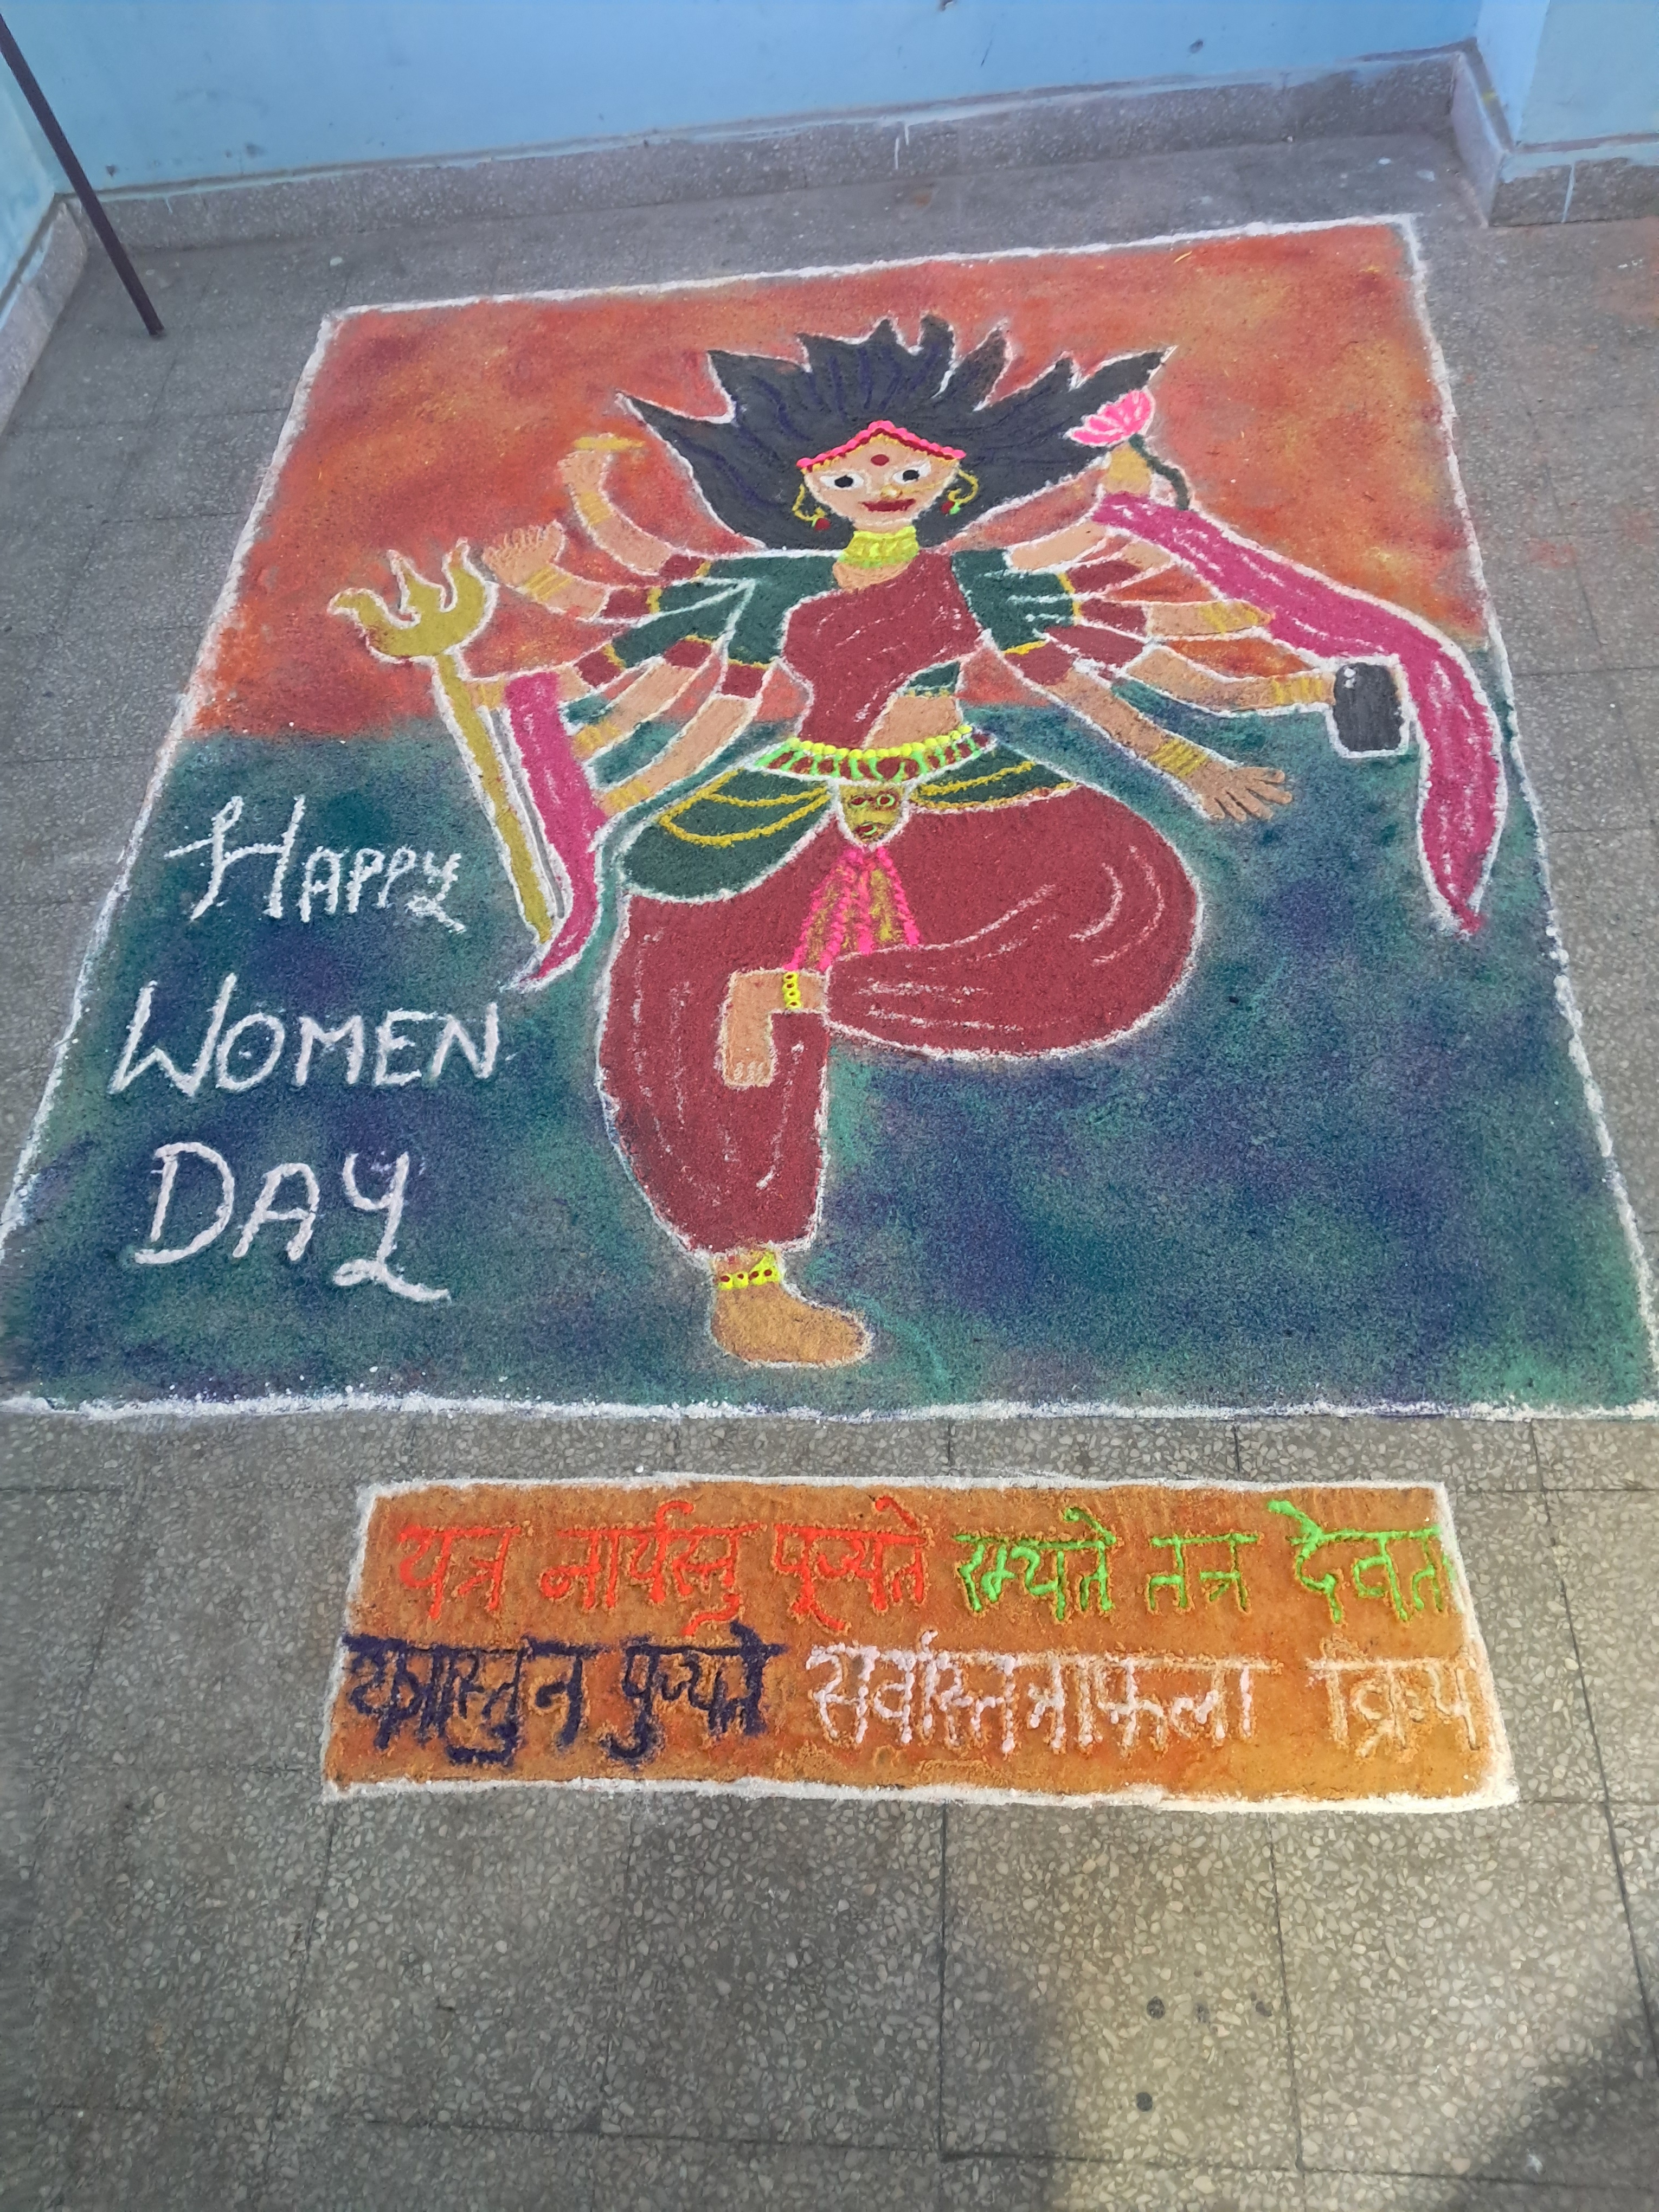 HAPPY
WOMEN
DAY
यत्र नार्यस्तु पूज्यते रम्यते तत्र देवता
यत्रास्तु न पुज्यते सर्वास्तत्राफला क्रिय